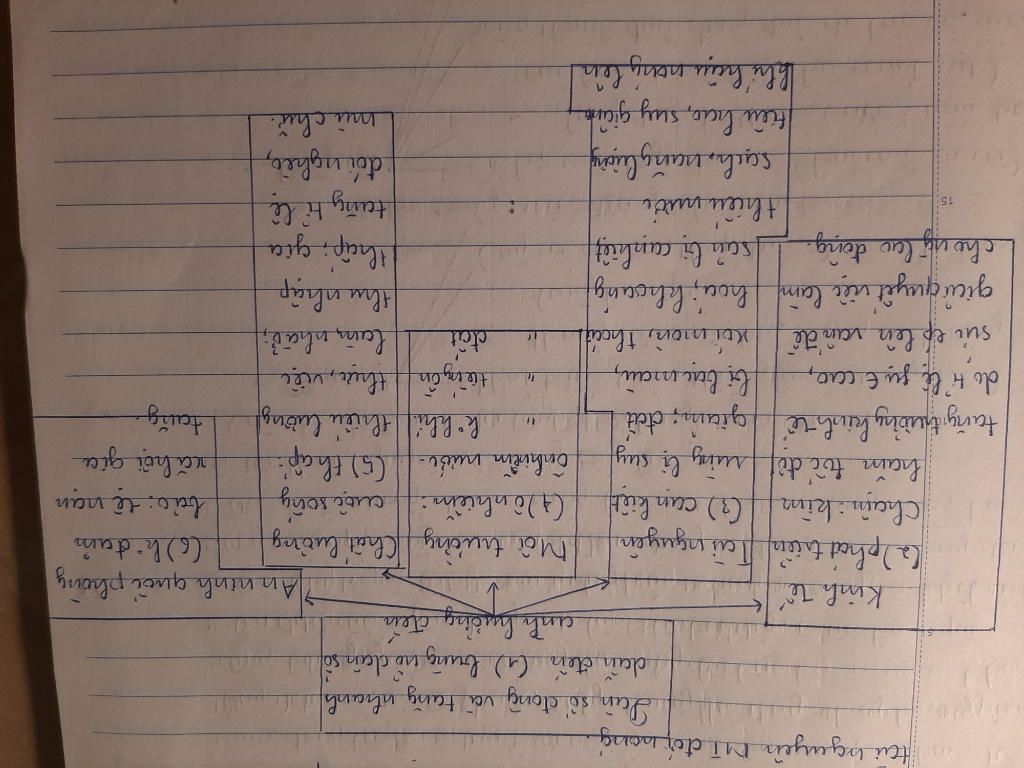 tài nguyên MT đới nóng.
Dân số đông và tăng nhanh
dẫn đến (1) bùng nổ dân số
ảnh hưởng đến
Kinh tế
(2) phát triển
chậm: kìm
hãm tốc độ
tăng trưởng kinh tế
do tỉ lệ phụ cao,
sức ép lên vấn đề
giải quyết việc làm
cho ng lao động.
Tài nguyên
(3) cạn kiệt
rừng bị suy
giảm; đất
bị bạc màu,
xói mòn, thoái
hoá; khoáng
sản bị cạn kiệt
thiếu nước
sạch, năng lượng
tiêu hao, suy giảm
khí hậu nóng lên
Môi trường
(4) ô nhiễm:
ô nhiễm nước.
" k° khí
" tiếng ồn
" đất
Chất lượng
cuộc sống
(5) thấp:
thiếu lương
thực, việc
làm, nhà ở;
thu nhập
thấp; gia
tăng tỉ lệ
đói nghèo,
mù chữ.
An ninh quốc phòng
(6) k° đảm
bảo: tệ nạn
xã hội gia
tăng.
15
5